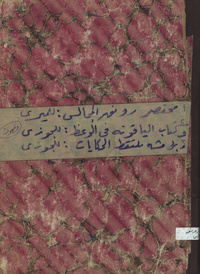 مختصر رونق المجالس : للميرى
وكتاب الياقوته فى الوعظ : للجوزى
وبلامشه ملتقط الحكايات : للجوزى